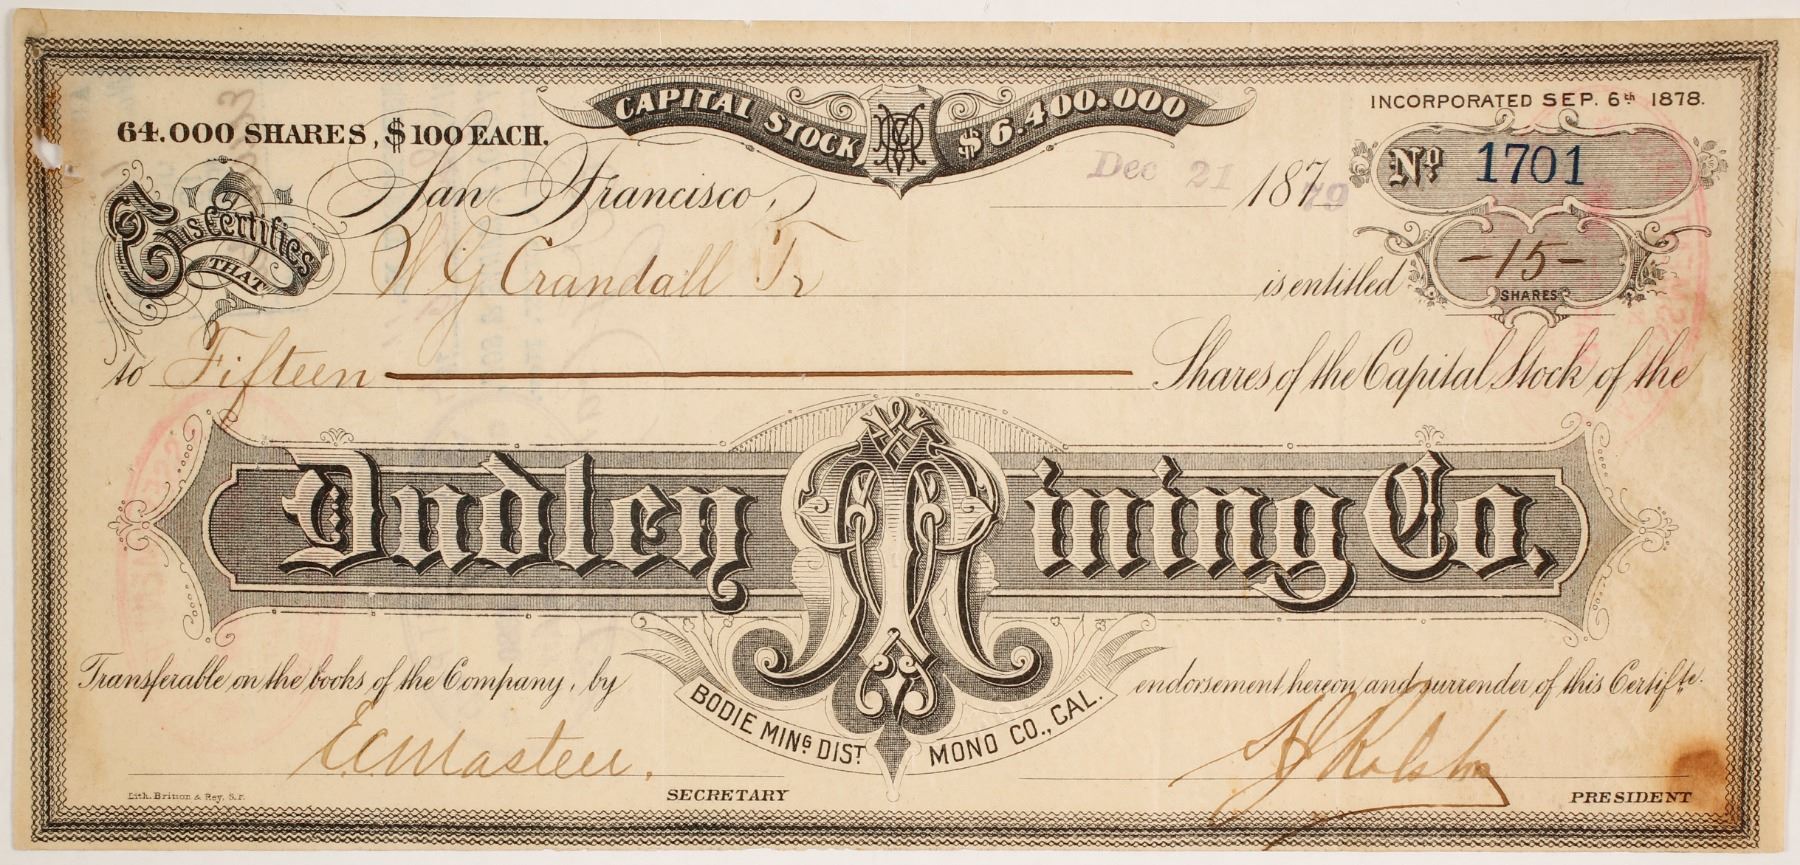 CAPITAL STOCK $6.400.000
INCORPORATED SEP. 6th 1878.
64.000 SHARES, $100 EACH.
Nº 1701
San Francisco, Dec 21 187 79
This Certifies THAT W G Crandall Tr is entitled
-15-
SHARES
to Fifteen Shares of the Capital Stock of the
Dudley Mining Co.
Transferable on the books of the Company, by endorsement hereon and surrender of this Certifte.
BODIE MING DIST. MONO CO., CAL.
E.C. Masteu.
SECRETARY
PRESIDENT
Lith. Britton & Rey, S.F.